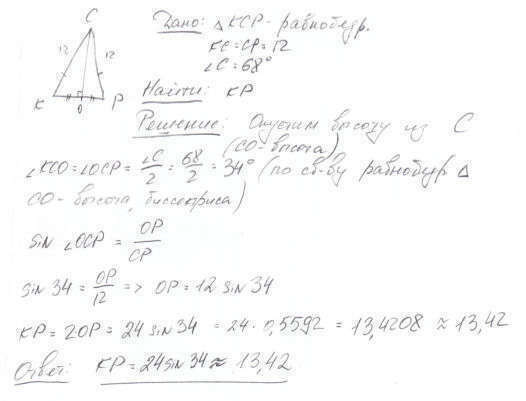 C
Дано: △KCP - равнобедр.
12
12
KC=CP=12
∠C=68°
K
O
P
Найти: KP
Решение: Опустим высоту из C
(CO-высота)
∠KCO=∠OCP = ∠C/2 = 68/2 = 34° (по св-ву равнобедр △
CO- высота, биссектриса)
sin ∠OCP = OP/CP
sin 34 = OP/12 => OP = 12 sin 34
KP = 2OP = 24 sin 34 = 24 · 0,5592 = 13,4208 ≈ 13,42
Ответ: KP = 24 sin 34 ≈ 13,42